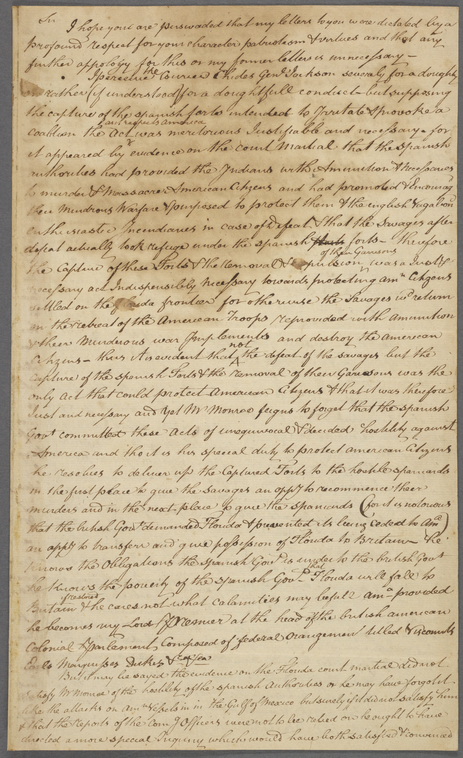 Sir
I hope you are perswaded that my letters to you were dictated by a
profound respect for your character patriotism & virtues and that any
further apology for this or my former letters is unnecessary —
I perceive the Courier chides Genl Jackson severely for a doughty
or rather if understood for a doubtfull conduct — but supposing
the capture of the spanish forts intended to Irritate & provoke a
coalition the Act was meritorious Justifiable and necessary — for
it appeared by evidence on the Court Martial that the spanish
authorities had provided the Indians with Ammunition & Necessaries
to murder & Massacre American Citizens and had promoted &
their Murdrous Warfare & purposed to protect them & the english
Enthusiastic Incendiaries in case of defeat & that the savages after
defeat actually took refuge under the spanish forts — Therefore
of their Garrisons
the Capture of these Forts & the Removal & expulsion was a Just &
necessary act Indispensibly necessary towards protecting Amn Citizens
settled on the frontier for otherwise the Savages in return
on the retreat of the American Troops reprovided with amunition
& their Murderous war Implements and destroy the American
Citizens — thus it is evident that not the defeat of the savages but the
capture of the spanish Forts & the removal of their Garrisons was the
only Act that could protect American Citizens & that it was therefore
Just and necessary and yet Mr Monroe feigns to forget that the spanish
Govt committed these acts of unequivocal & decided hostility against
America and tho it is his special duty to protect american Citizens
he resolves to deliver up the Captured Forts to the hostile spaniards
in the first place to give the savages an oppy to recommence their
murders and in the next place to give the Spaniards (for it is notorious
that the british Govt demanded Florida & prevented its being ceded to Ama)
an oppy to transfer and give possession of Florida to Britain — he
knows the Obligations the Spanish Govt is under to the british Govt
he knows the poverty of the spanish Govt that Florida will fall to
Britain & he cares not what calamities may befall Ama provided
he becomes my Lord Premier at the head of the british american
Colonial Parlement Composed of federal Orangemen titled Viscounts
Earls Marquisses Dukes &
But it may be sayed the evidence on the Florida court martial did not
satisfy Mr Monroe of the hostility of the spanish Authorities or he may have forgot
like the attacks on Amn Vessels in the Gulf of Mexico but surely if it did not satisfy him
& that the reports of the Comg Officers were not to be relied on he ought to have
directed a more special Inquiry which would have both satisfied & convinced